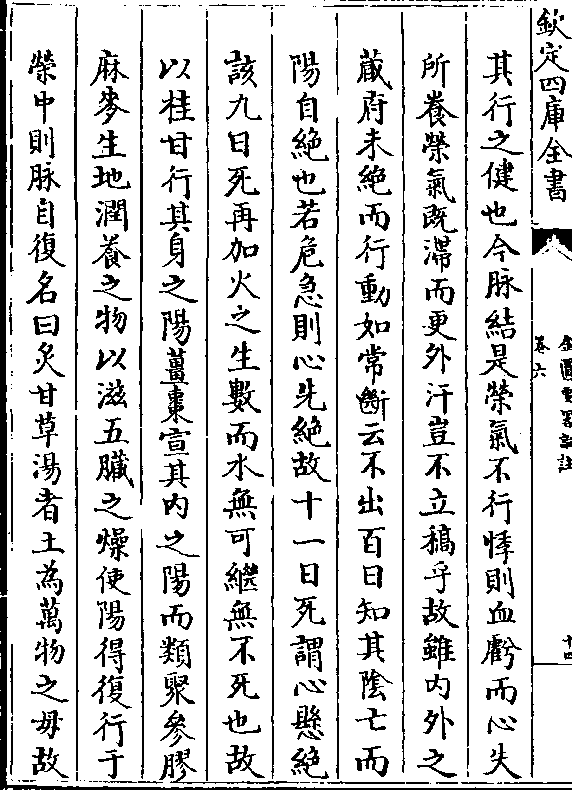 欽定四庫全書
金匱要畧論註
卷六
十四
其行之健也今脉結是榮氣不行悸則血虧而心失
所養榮氣既滯而更外汗豈不立槁乎故雖内外之
藏府未絶而行動如常斷云不出百日知其陰亡而
陽自絶也若危急則心先絶故十一日死謂心懸絶
該九日死再加火之生數而水無可繼無不死也故
以桂甘行其身之陽薑棗宣其内之陽而類聚參膠
麻麥生地潤養之物以滋五臟之燥使陽得復行于
榮中則脉自復名曰炙甘草湯者土為萬物之母故